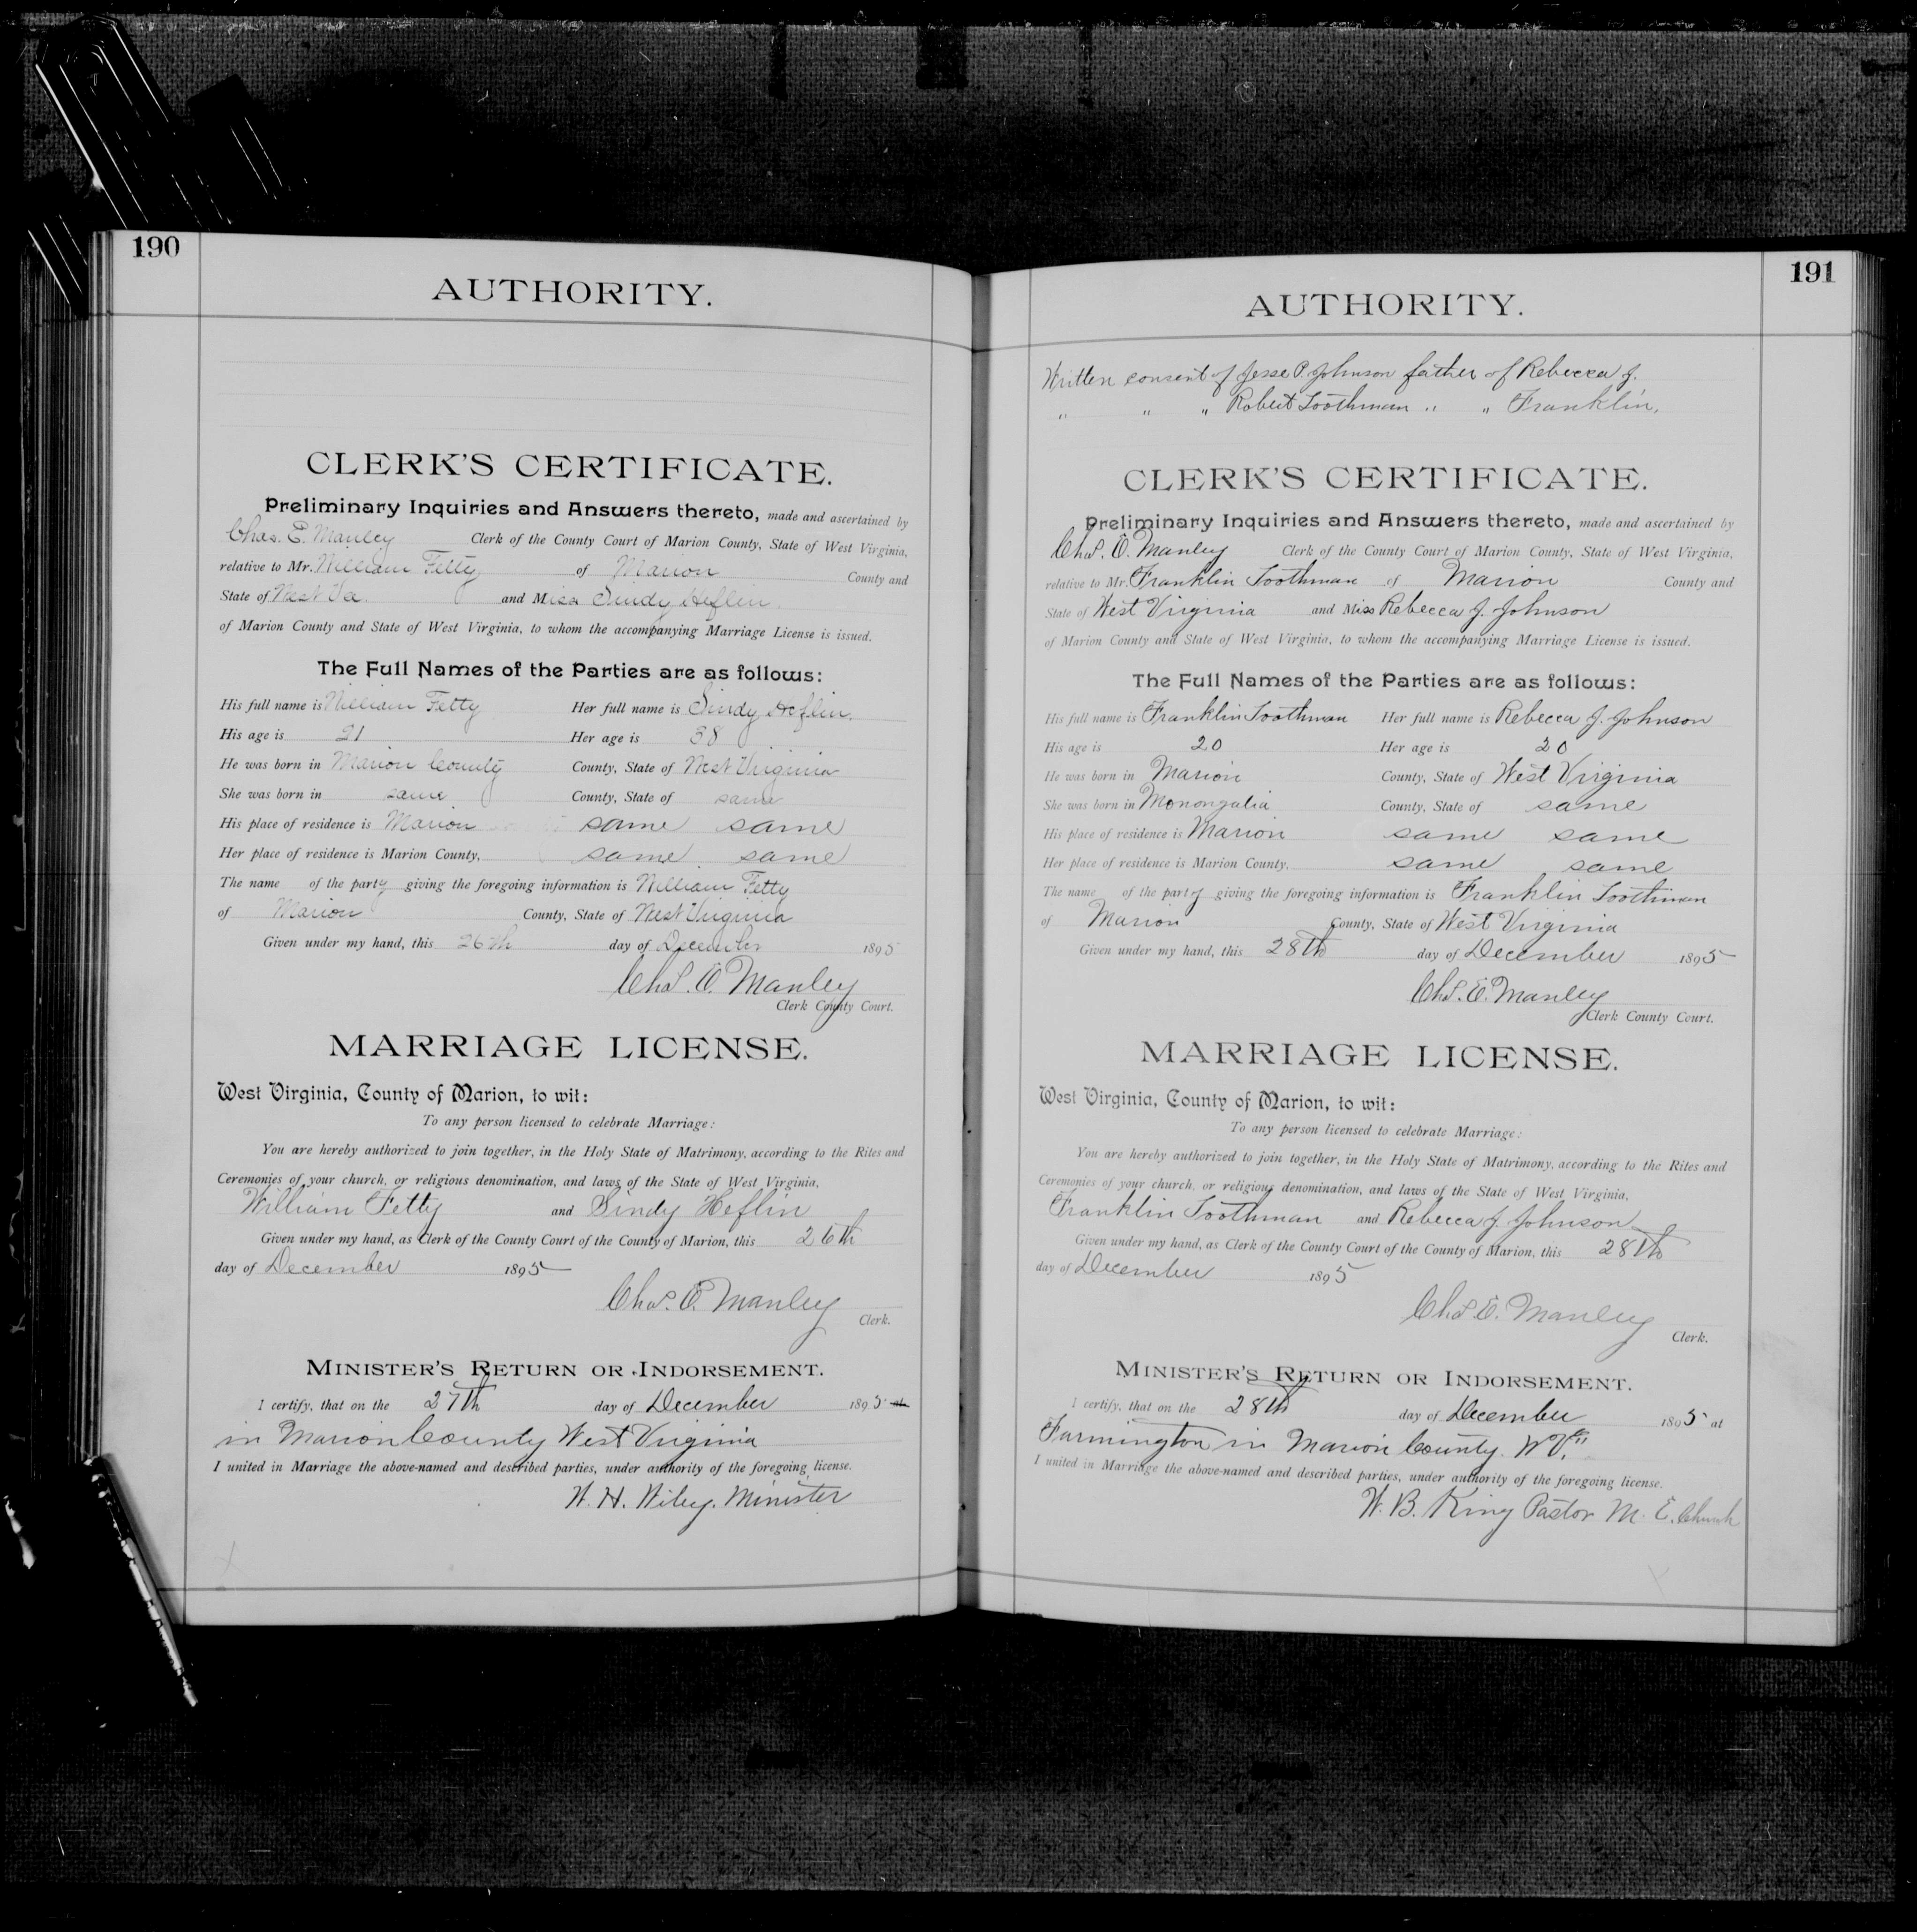 190
AUTHORITY.
CLERK'S CERTIFICATE.
Preliminary Inquiries and Answers thereto, made and ascertained by
Chas. E. Manley Clerk of the County Court of Marion County, State of West Virginia,
relative to Mr. William Fetty of Marion County and
State of West Va. and Miss Sindy Heflin
of Marion County and State of West Virginia, to whom the accompanying Marriage License is issued.
The Full Names of the Parties are as follows:
His full name is William Fetty Her full name is Sindy Heflin.
His age is 21 Her age is 38
He was born in Marion County County, State of West Virginia
She was born in same County, State of same
His place of residence is Marion same same
Her place of residence is Marion County, same same
The name of the party giving the foregoing information is William Fetty
of Marion County, State of West Virginia
Given under my hand, this 26th day of December 1895
Chas. E. Manley
Clerk County Court.
MARRIAGE LICENSE.
West Virginia, County of Marion, to wit:
To any person licensed to celebrate Marriage:
You are hereby authorized to join together, in the Holy State of Matrimony, according to the Rites and
Ceremonies of your church, or religious denomination, and laws of the State of West Virginia,
William Fetty and Sindy Heflin
Given under my hand, as Clerk of the County Court of the County of Marion, this 26th
day of December 1895
Chas. E. Manley
Clerk.
MINISTER'S RETURN OR INDORSEMENT.
I certify, that on the 27th day of December 1895 at
in Marion County West Virginia
I united in Marriage the above-named and described parties, under authority of the foregoing license.
W. H. Wiley. Minister
191
AUTHORITY.
Written consent of Jesse P. Johnson father of Rebecca J.
" " " Robert Toothman " " Franklin.
CLERK'S CERTIFICATE.
Preliminary Inquiries and Answers thereto, made and ascertained by
Chas. E. Manley Clerk of the County Court of Marion County, State of West Virginia,
relative to Mr. Franklin Toothman of Marion County and
State of West Virginia and Miss Rebecca J. Johnson
of Marion County and State of West Virginia, to whom the accompanying Marriage License is issued.
The Full Names of the Parties are as follows:
His full name is Franklin Toothman Her full name is Rebecca J. Johnson
His age is 20 Her age is 20
He was born in Marion County, State of West Virginia
She was born in Monongalia County, State of same
His place of residence is Marion same same
Her place of residence is Marion County, same same
The name of the party giving the foregoing information is Franklin Toothman
of Marion County, State of West Virginia
Given under my hand, this 28th day of December 1895
Chas. E. Manley
Clerk County Court.
MARRIAGE LICENSE.
West Virginia, County of Marion, to wit:
To any person licensed to celebrate Marriage:
You are hereby authorized to join together, in the Holy State of Matrimony, according to the Rites and
Ceremonies of your church, or religious denomination, and laws of the State of West Virginia,
Franklin Toothman and Rebecca J. Johnson
Given under my hand, as Clerk of the County Court of the County of Marion, this 28th
day of December 1895
Chas E. Manley
Clerk.
MINISTER'S RETURN OR INDORSEMENT.
I certify, that on the 28th day of December 1895 at
Farmington in Marion County. W Va
I united in Marriage the above-named and described parties, under authority of the foregoing license.
W. B. King Pastor M. E. Church